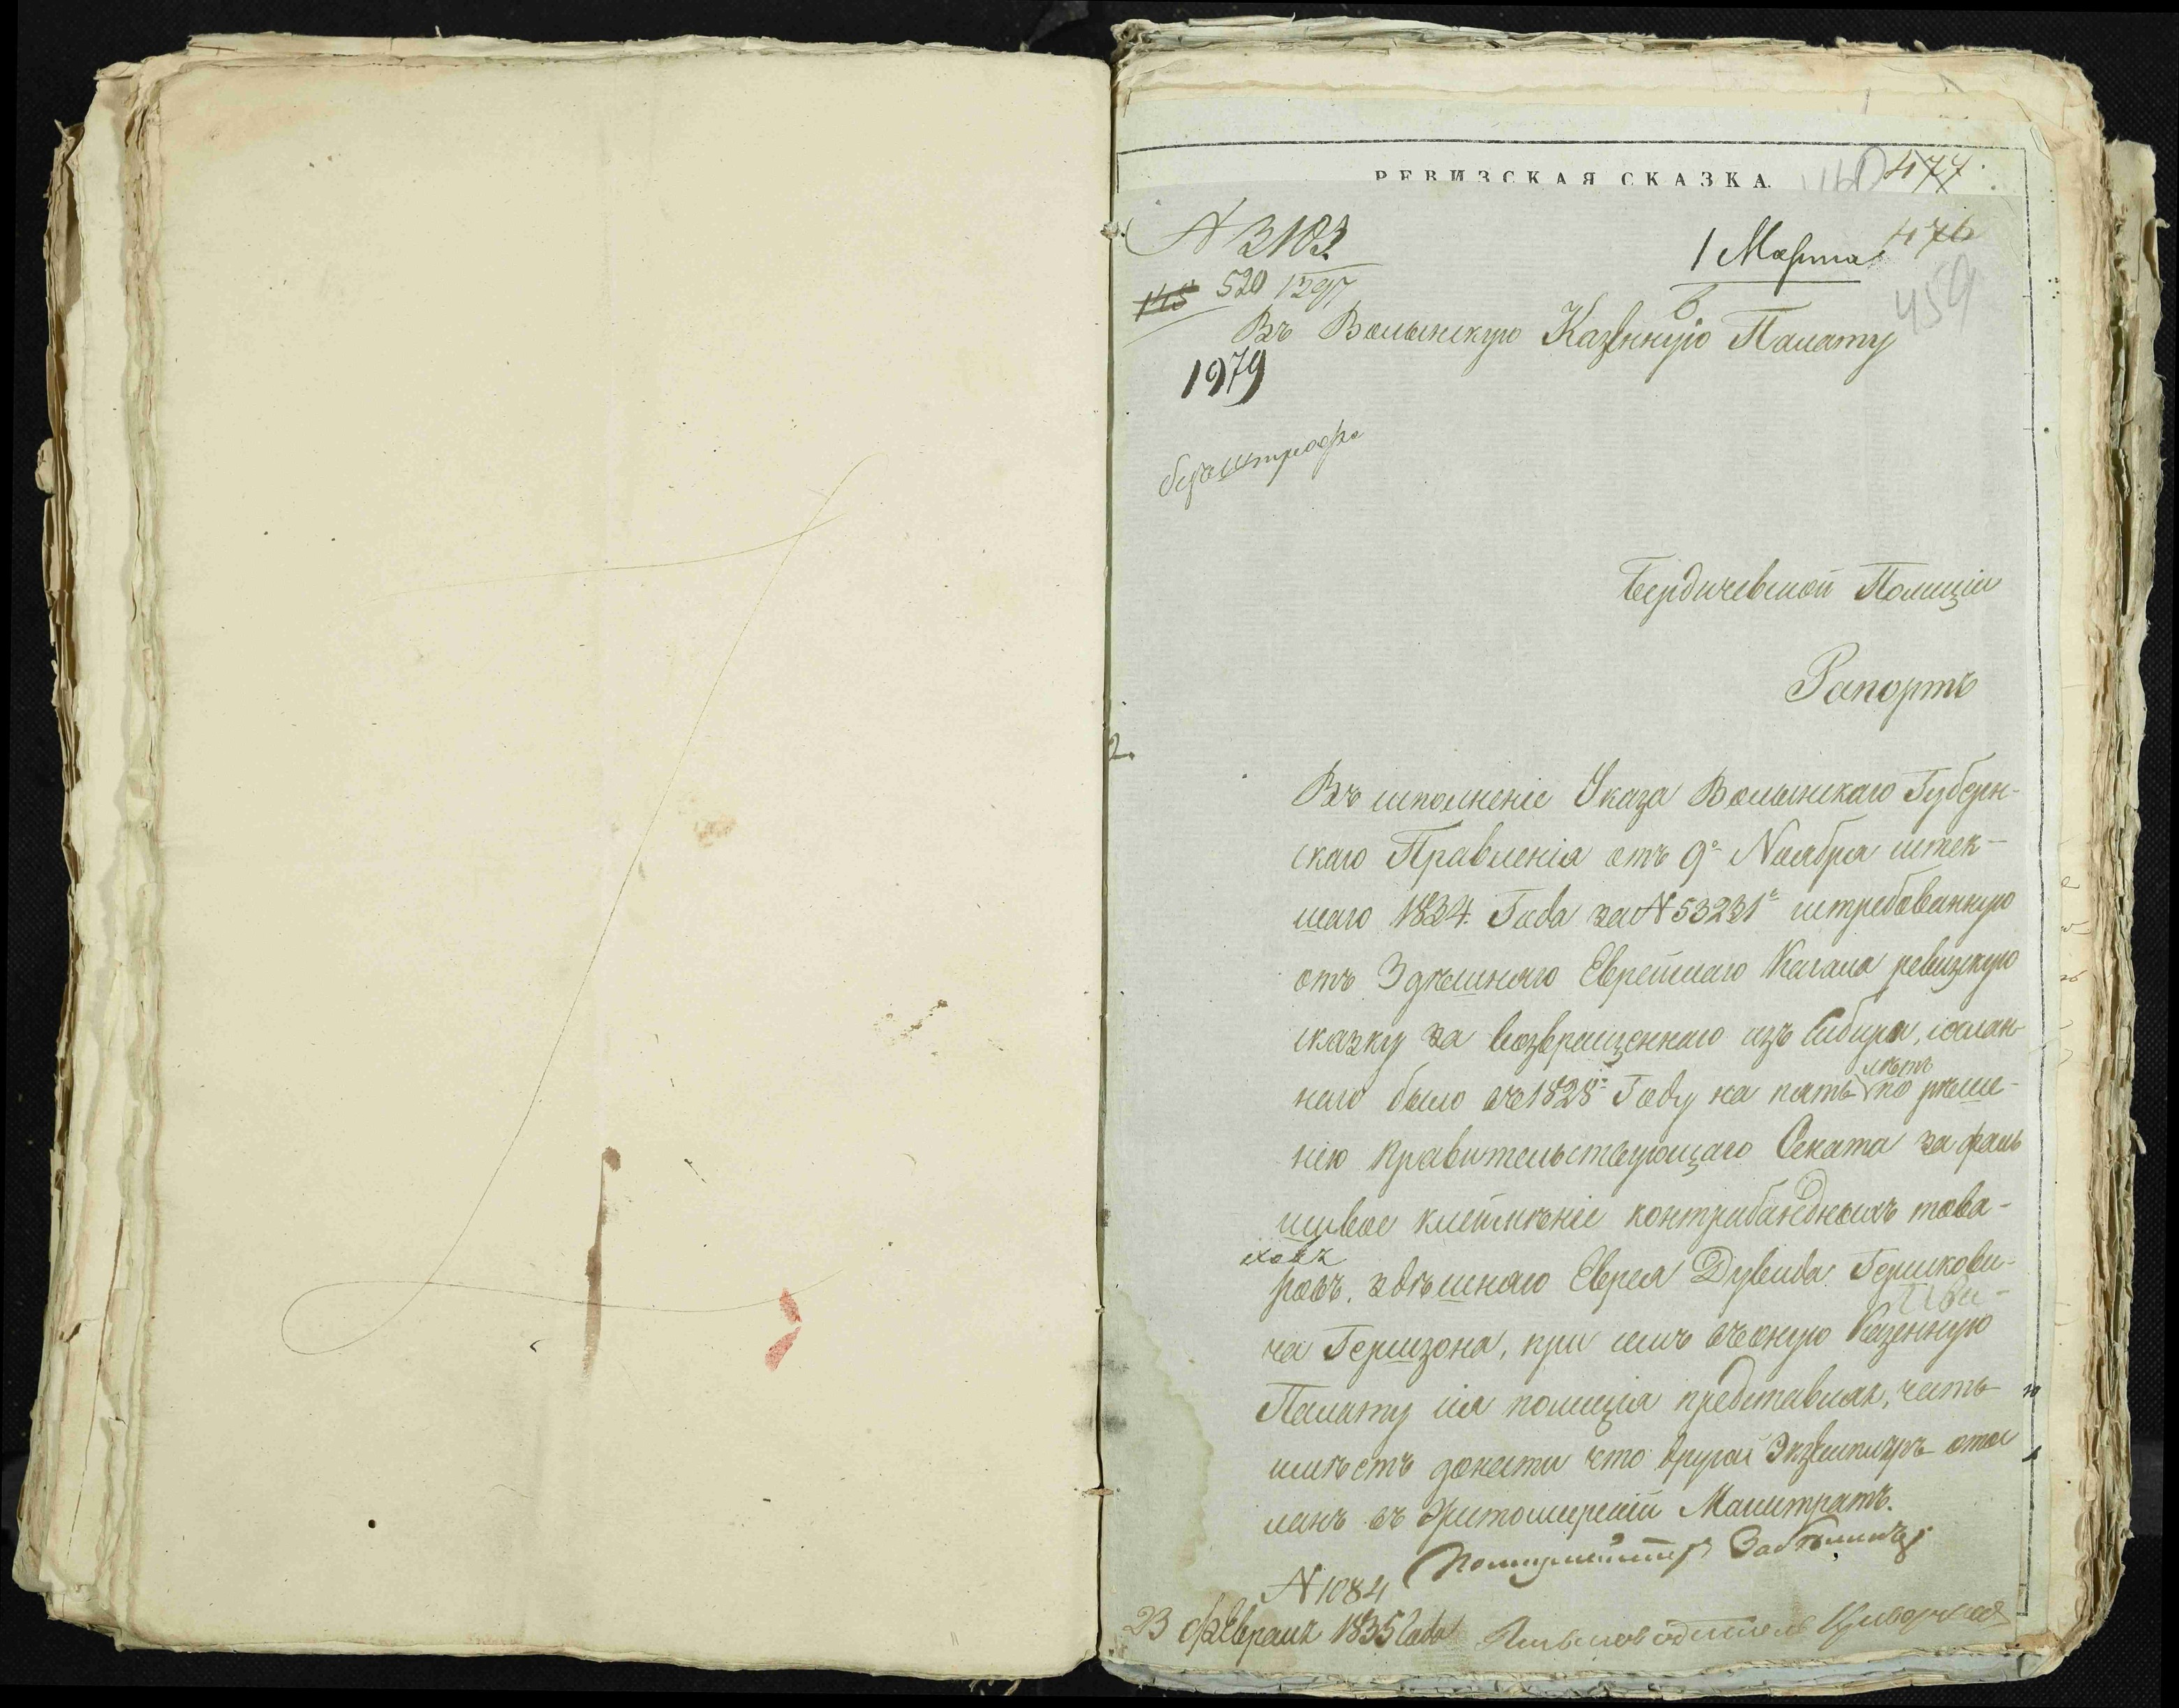 РЕВИЗСКАЯ СКАЗКА.
477
N 3103
1 Марта
476
115 520 1297
459
Въ Волынскую Казенную Палату
1979
безъ штрафа
Бердичевской Полиціи
Рапортъ
Въ исполненіе Указа Волынскаго Губерн-
скаго Правленія отъ 9го Ноября истек-
шаго 1834. Года за N 53231м истребованную
отъ Здѣшняго Еврейскаго Кагала ревизскую
сказку за возвращеннаго изъ Сибири, сослан-
наго было въ 1828м Году на пять лѣтъ по рѣше-
нію Правительствующаго Сената за фаль
шивое клеймѣніе контрабандныхъ това-
ровъ, здѣшняго Еврея Дувида Гершкови-
ча Гершзона, при семъ въ оную Казенную
Палату сія полиція представляя, честь
имѣетъ донести что другой Экземпляръ отос
ланъ въ Житомирскій Магистратъ.
Полицмейстеръ
N 1084
23 февраля 1835 Года
Письмоводитель